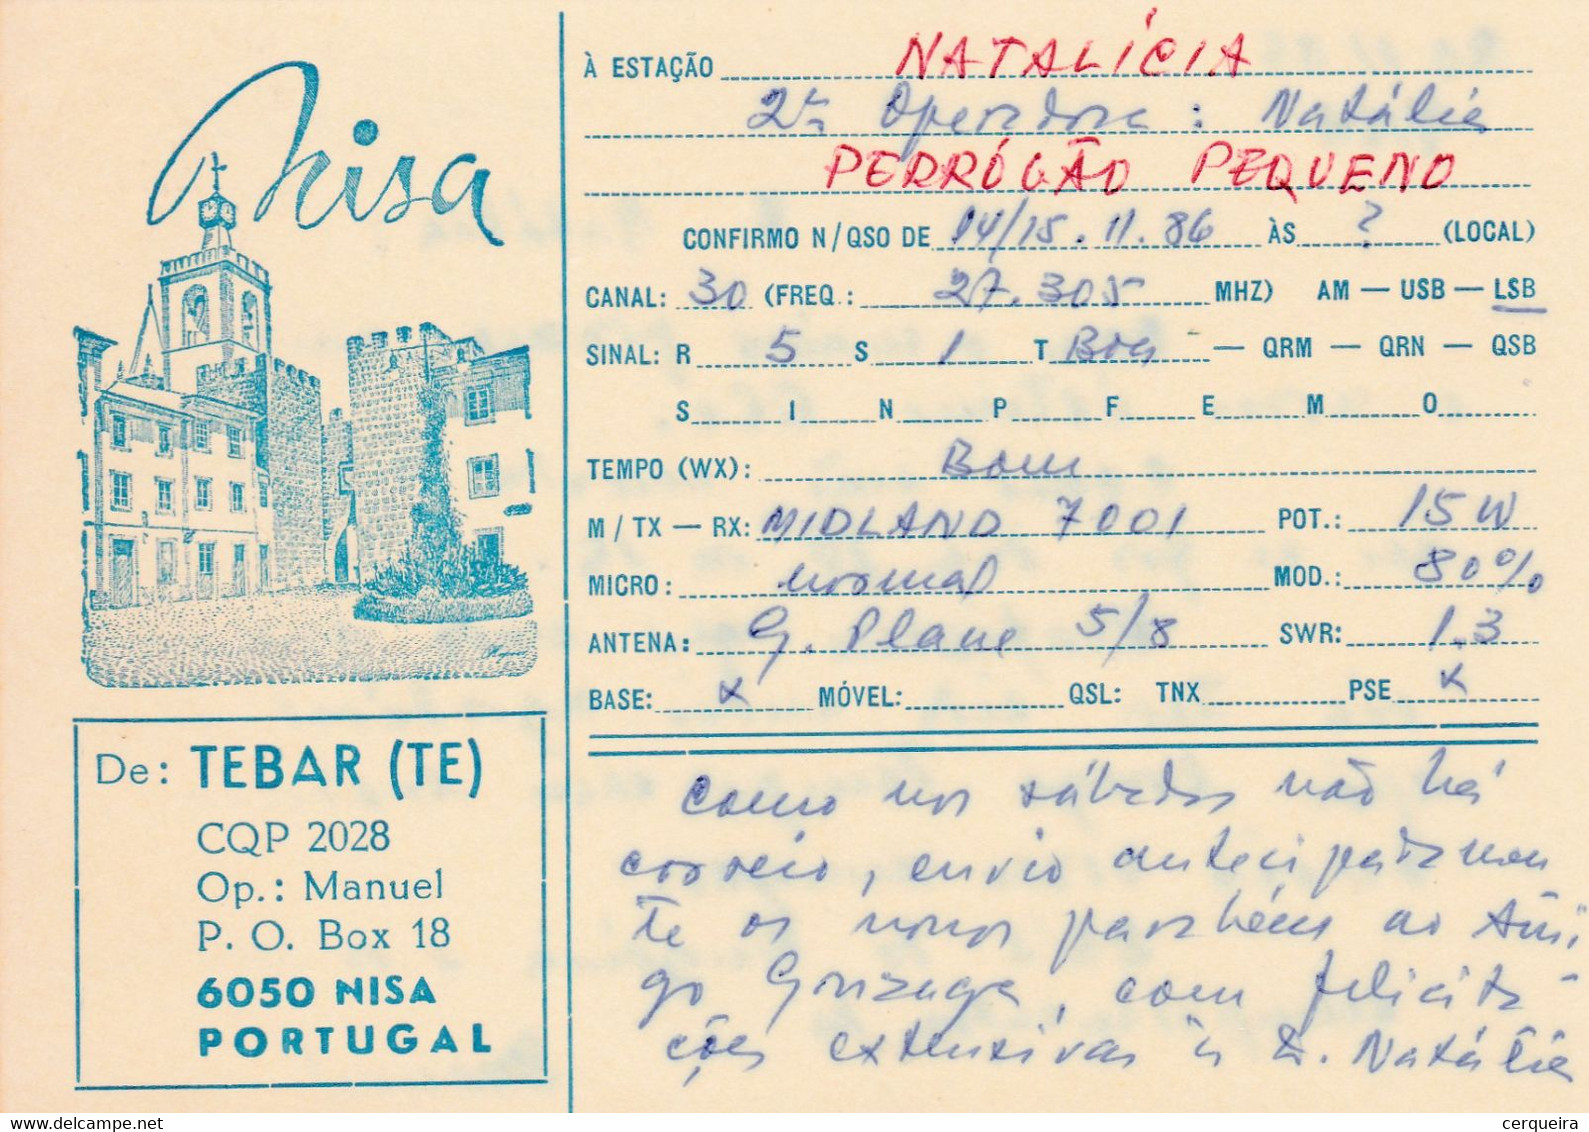 Nisa
De: TEBAR (TE)
CQP 2028
Op.: Manuel
P. O. Box 18
6050 NISA
PORTUGAL
À ESTAÇÃO NATALÍCIA
2ª Operadora: Natália
PERRÓGÃO PEQUENO
CONFIRMO N/QSO DE 14/15.11.86 ÀS ? (LOCAL)
CANAL: 30 (FREQ.: 27.305 MHZ) AM — USB — LSB
SINAL: R 5 S 1 T Boa — QRM — QRN — QSB
S I N P F E M O
TEMPO (WX): Bom
M / TX — RX: MIDLAND 7001 POT.: 15W
MICRO: normal MOD.: 80%
ANTENA: G. Plane 5/8 SWR: 1.3
BASE: x MÓVEL: QSL: TNX PSE x
Como nos sábados não há
correio, envio antecipadamen
te os nossos parabéns ao Ami
go Gonzaga, com felicita-
ções extensivas à D. Natália
cerqueira